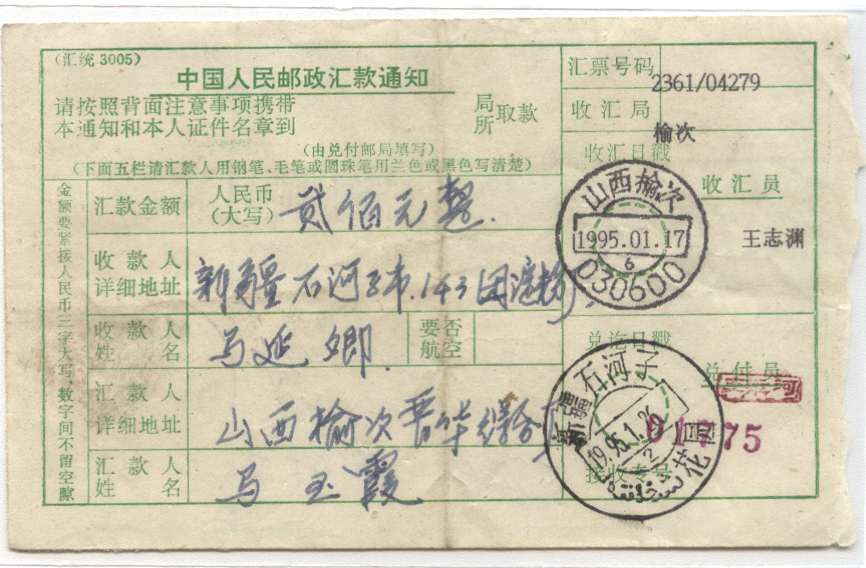 (汇统 3005)
中国人民邮政汇款通知
请按照背面注意事项携带
本通知和本人证件名章到
局
所
取款
(由兑付邮局填写)
(下面五栏请汇款人用钢笔、毛笔或圆珠笔用兰色或黑色写清楚)
金额要紧接人民币三字大写,数字间不留空隙
汇款金额
人民币
(大写)
贰佰元整.
收款人
详细地址
新疆石河子市.143团淀粉厂
收款人
姓名
马延卿.
要否
航空
汇款人
详细地址
山西榆次晋华综合
汇款人
姓名
马玉霞
汇票号码
2361/04279
收汇局
榆次
收汇日戳
山西榆次
1995.01.17
6
030600
收汇员
王志渊
兑讫日戳
新疆石河子
1995.1.26
12
花园
兑付员
01775
接收专号